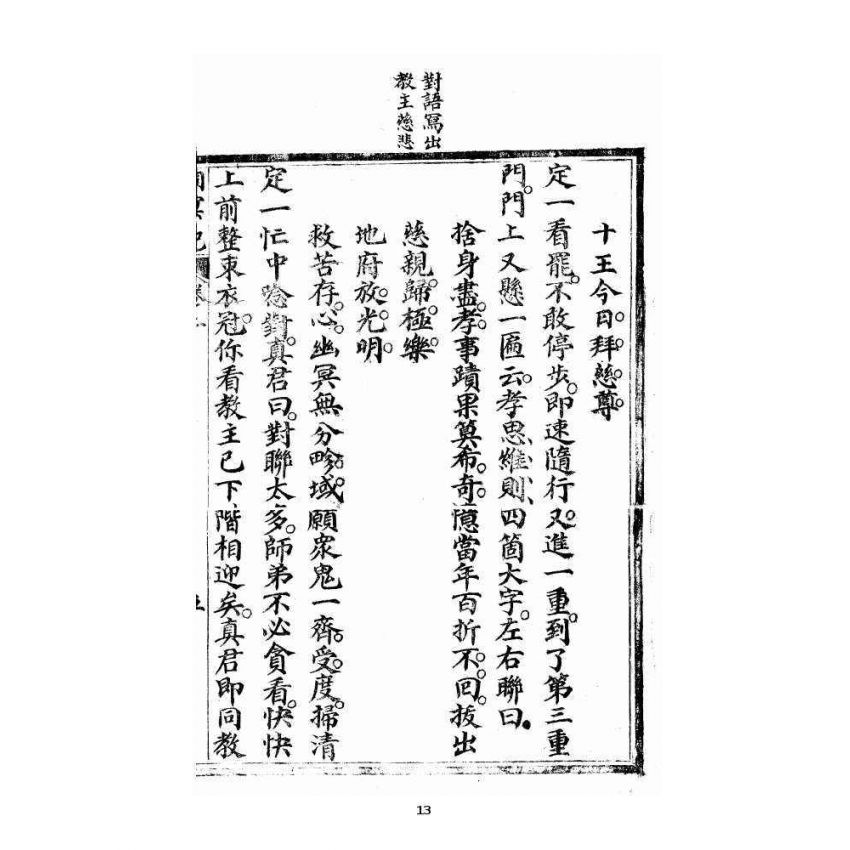 對語寫出
教主慈悲
十王今日。拜。慈。尊。
定一看罷。不敢停步。即速隨行。又進一重。到了第三重
門。門上又懸一匾。云。孝思維則。四箇大字。左右聯曰。
捨身盡。孝。事蹟果算希。奇。憶當年百折不。回。拔出
慈親。歸。極。樂。
地府放。光。明。
救苦存。心。幽冥無分畛。域。願眾鬼一齊。受。度。掃清
定一忙中唸對。真君曰。對聯太多。師弟不必貪看。快快
上前整束衣冠。你看教主已下階相迎矣。真君即同教
13